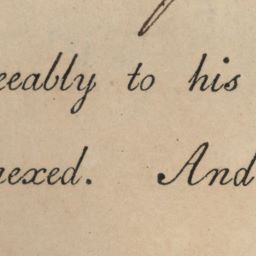 eeably to his
nexed. And